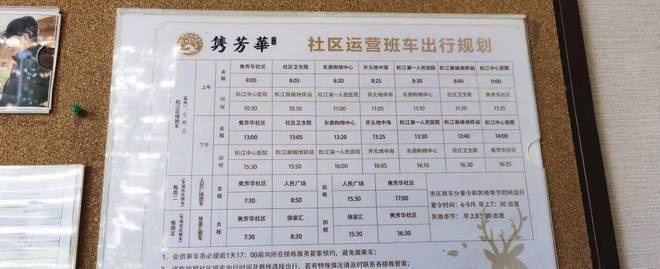 隽芳華 社区运营班车出行规划
上午 去程 隽芳华社区 社区卫生院 东鼎购物中心 开元地中海 松江第一人民医院 松江新城地铁站 松江中心医院
8:00 8:05 8:20 8:25 8:30 8:40 9:00
回程 松江中心医院 松江新城地铁站 松江第一人民医院 开元地中海 东鼎购物中心 社区卫生院 隽芳华社区
10:30 10:50 11:00 11:05 11:10 11:30 11:35
松江区域班车
下午 去程 隽芳华社区 社区卫生院 东鼎购物中心 开元地中海 松江第一人民医院 松江新城地铁站 松江中心医院
13:00 13:05 13:20 13:25 13:30 13:40 14:00
回程 松江中心医院 松江新城地铁站 松江第一人民医院 开元地中海 东鼎购物中心 社区卫生院 隽芳华社区
15:30 15:50 16:00 16:10 16:30 16:35
每周二 人民广场班车 去程 隽芳华社区 人民广场 回程 人民广场 隽芳华社区
7:30 8:50 15:30 17:00
每周五 徐家汇班车 去程 隽芳华社区 徐家汇 回程 徐家汇 隽芳华社区
7:30 8:50 15:30 16:30
市区班车分夏令和其他季节时间出行
夏令时间：6-9月 早上7：30出发
其他季节： 早上8：00出发
1、会员乘车务必提前1天17：00前向所在楼栋服务管家预约，避免漏乘车；